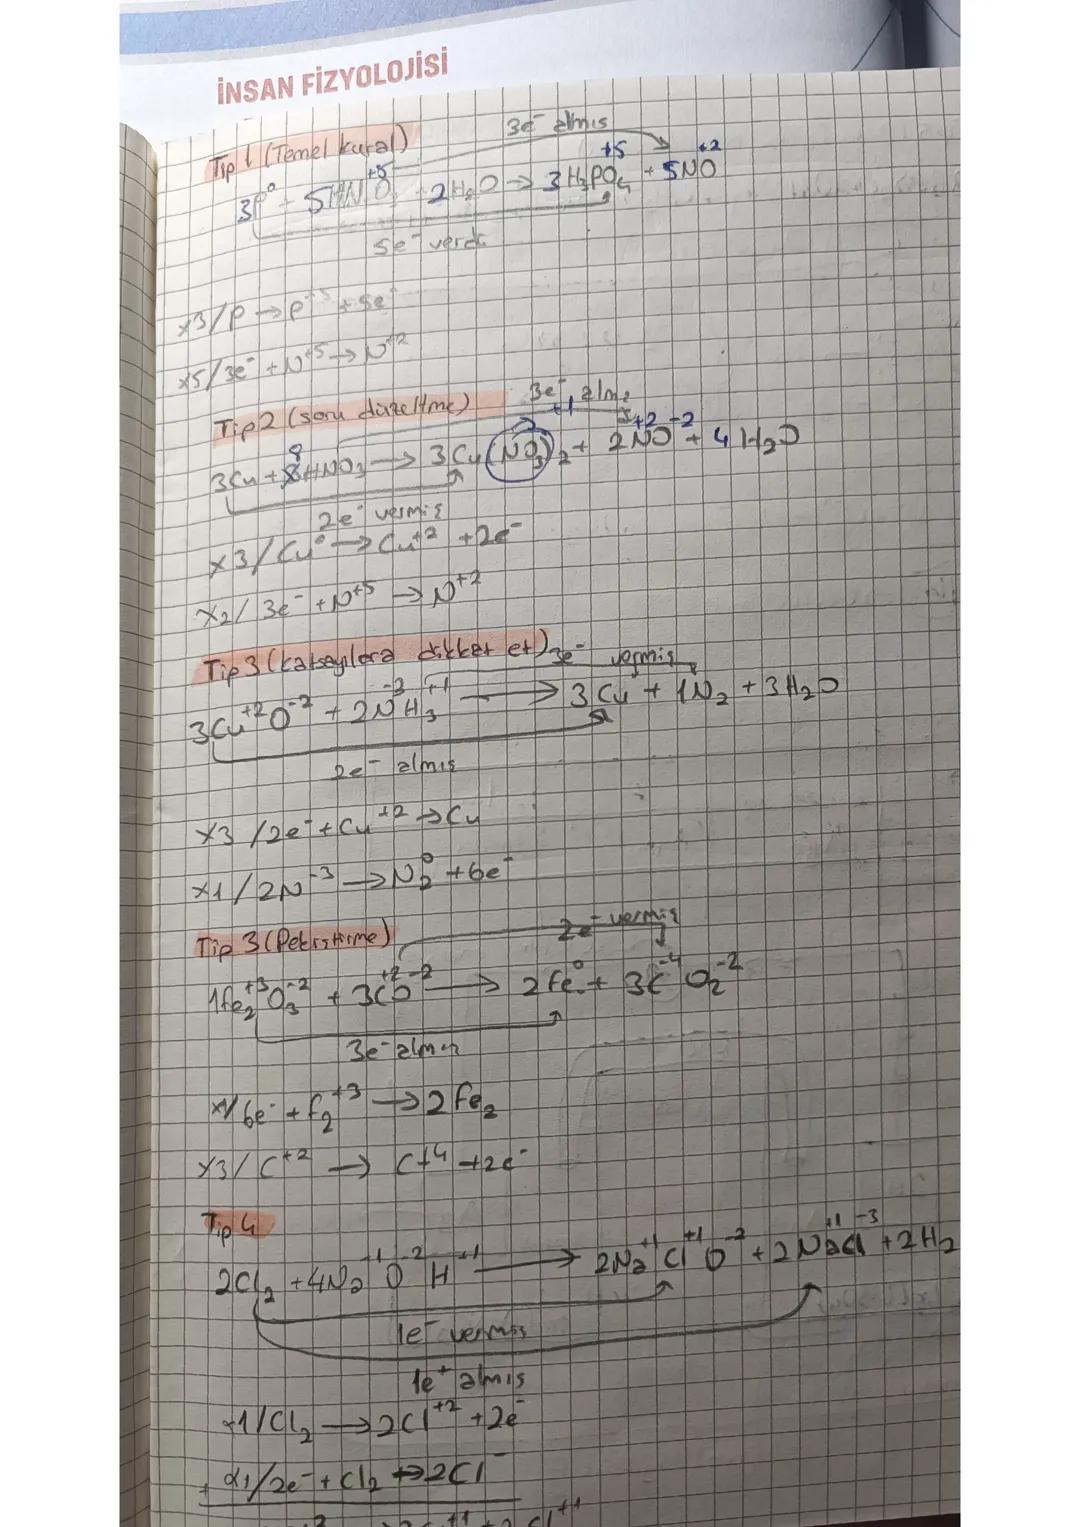 İNSAN FİZYOLOJİSİ
Tip 1 (Temel kural)
3e⁻ almış
3P⁰ + 5HN⁺⁵O₃ + 2H₂O → 3H₃P⁺⁵O₄ + 5N⁺²O
5e⁻ verdi
x3/P → P⁺⁵ + 5e⁻
x5/3e⁻ + N⁺⁵ → N⁺²
Tip 2 (soru düzeltme)
3e⁻ almış
3Cu + 8HNO₃ → 3Cu(NO₃)₂ + 2N⁺²O⁻² + 4H₂O
2e⁻ vermiş
x3/Cu⁰ → Cu⁺² + 2e⁻
x2/3e⁻ + N⁺⁵ → N⁺²
Tip 3 (katsayılara dikkat et)
3e⁻ vermiş
3Cu⁺²O⁻² + 2N⁻³H₃⁺¹ → 3Cu + 1N₂ + 3H₂O
2e⁻ almış
x3/2e⁻ + Cu⁺² → Cu
x1/2N⁻³ → N₂⁰ + 6e⁻
Tip 3 (Pekiştirme)
2e⁻ vermiş
1Fe₂⁺³O₃⁻² + 3C⁺²O⁻² → 2Fe⁰ + 3C⁻⁴O₂⁻²
3e⁻ almış
x1/6e⁻ + F₂⁺³ → 2Fe₂
x3/C⁺² → C⁺⁴ + 2e⁻
Tip 4
2Cl₂ + 4Na⁺¹O⁻²H⁺¹ → 2Na⁺¹Cl⁺¹O⁻² + 2Na⁺¹Cl⁻³ + 2H₂
1e⁻ vermiş
1e⁺ almış
x1/Cl₂ → 2Cl⁺² + 2e⁻
+ x1/2e⁻ + Cl₂ → 2Cl⁻